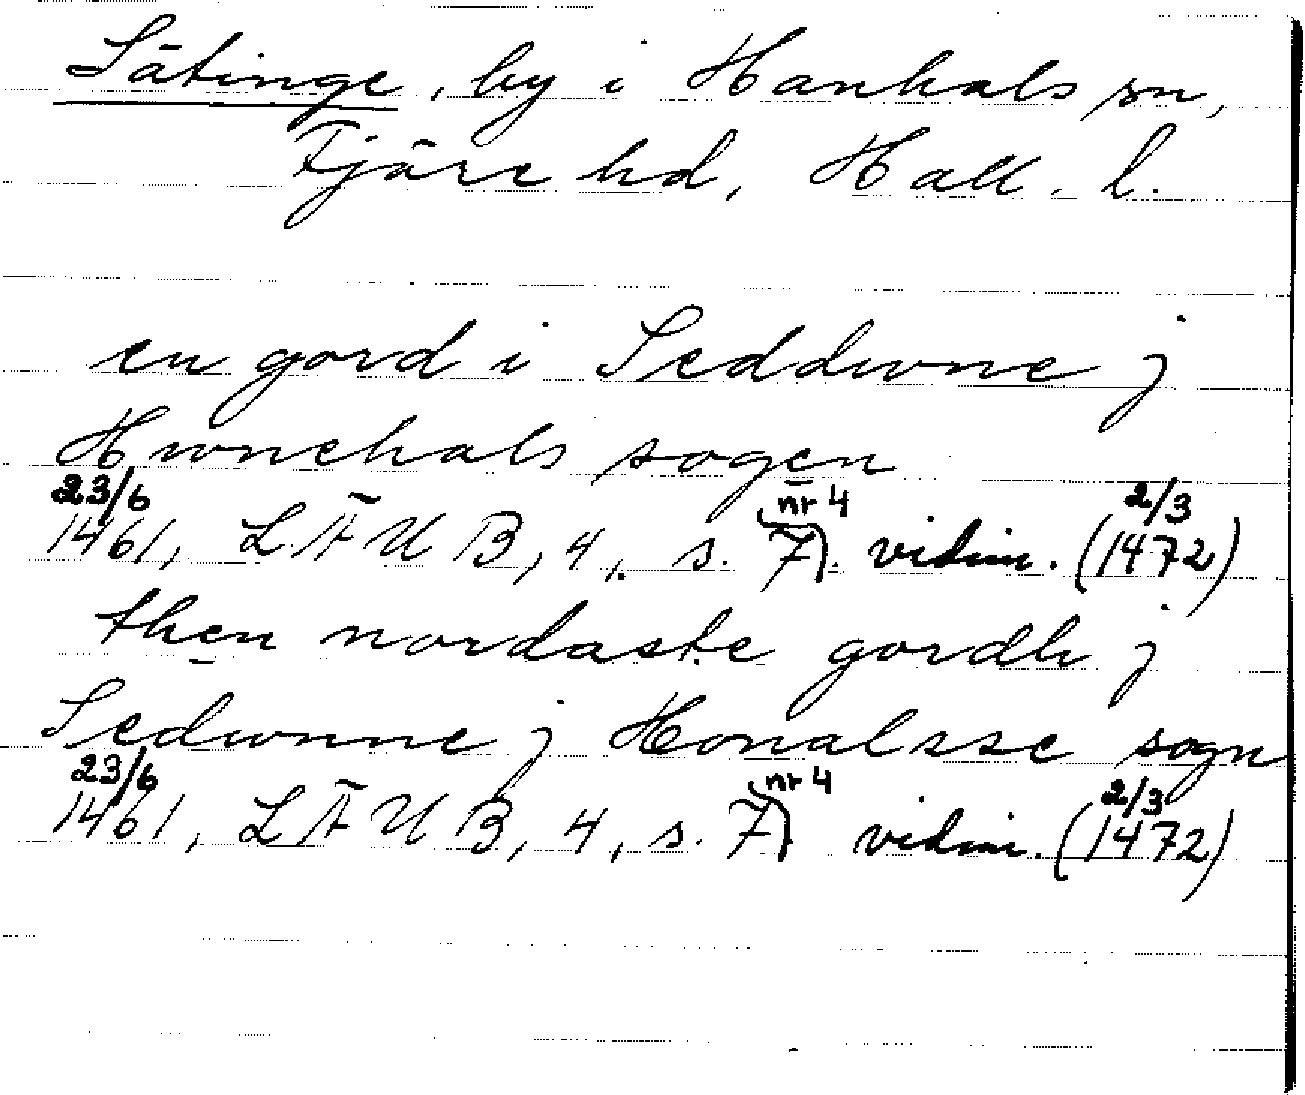 Sätinge, by i Hanhals sn,
Fjäre hd, Hall. l.
en gord i Seddwne j
Hwnehals sogen
23/6 1461, LÄUB, 4, s. 7 (nr 4). vidim. (2/3 1472)
then nordaste gordh j
Sedwnne j Honalsse sogn
23/6 1461, LÄUB, 4, s. 7 (nr 4) vidim. (2/3 1472)